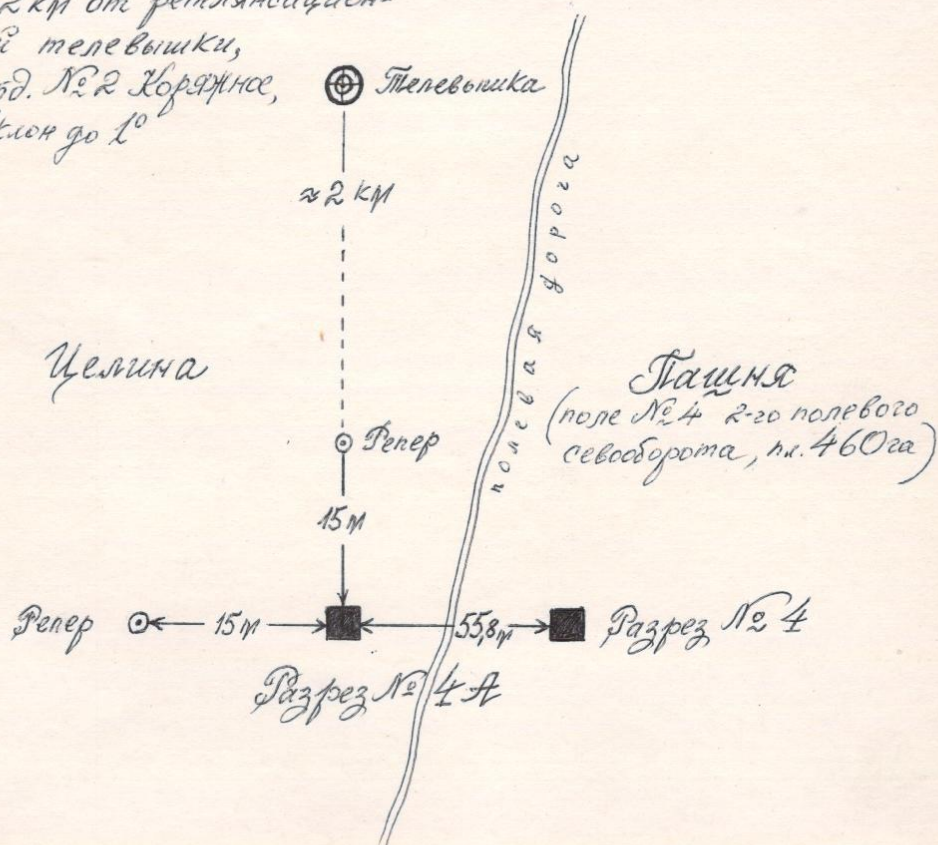 2 км от ретлянсацион-
й телевышки,
тд. №2 Коряжное,
клон до 1°
Телевышка
≈2 км
полевая дорога
Целина
Пашня
(поле №4 2-го полевого
севооборота, пл. 460га)
Репер
15м
Репер
15м
55,8м
Разрез №4
Разрез №4А